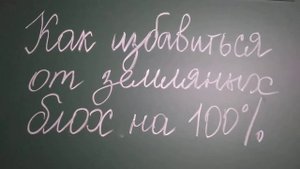 Как избавиться
от земляных
блох на 100%